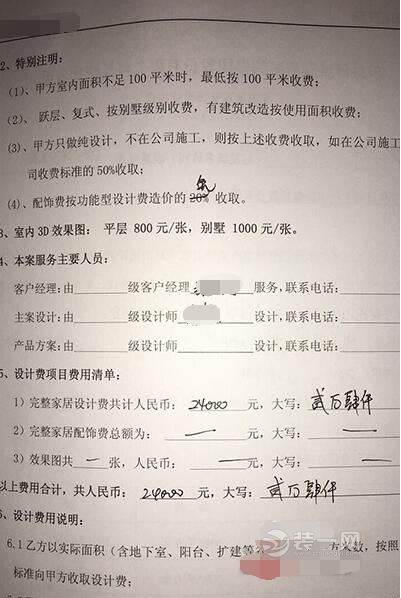 2、特别注明：
(1)、甲方室内面积不足 100 平米时，最低按 100 平米收费；
(2)、 跃层、复式、按别墅级别收费，有建筑改造按使用面积收费；
(3)、甲方只做纯设计，不在公司施工，则按上述收费收取，如在公司施工
司收费标准的 50%收取；
(4)、配饰费按功能型设计费造价的 20% 收取。
3、室内 3D 效果图： 平层 800 元/张，别墅 1000 元/张。
4、本案服务主要人员：
客户经理：由______级客户经理______服务，联系电话：______
主案设计：由______级设计师______设计，联系电话：______
产品方案：由______级设计师______设计，联系电话：______
5、设计费项目费用清单：
1）完整家居设计费共计人民币： 24000 元，大写：贰万肆仟
2）完整家居配饰费总额为： 一 元，大写： 一
3）效果图共 一 张，人民币： 一 元，大写： 一
以上费用合计，共人民币： 24000 元，大写： 贰万肆仟
6、设计费用说明：
6.1 乙方以实际面积（含地下室、阳台、扩建等 方米数，按照
标准向甲方收取设计费；
装一网